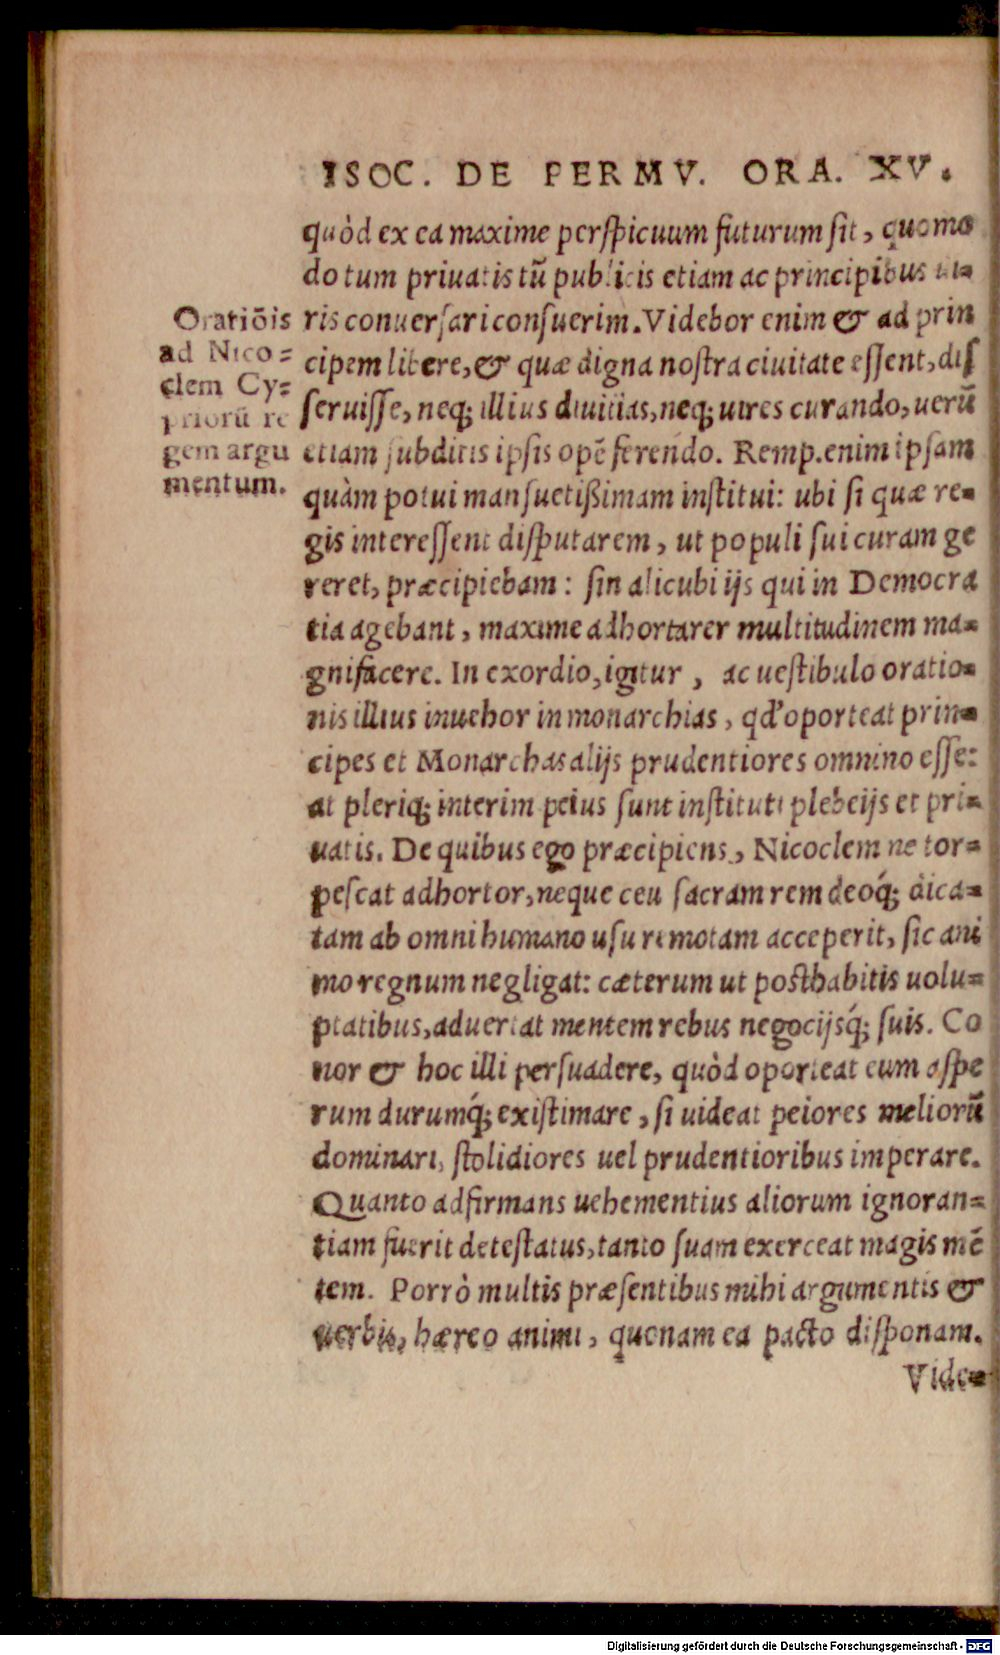 ISOC. DE PERMV. ORA. XV.
quòd ex ea maxime perspicuum futurum sit, quomo
do tum priuatis tũ publicis etiam ac principibus ui-
ris conuersari consuerim. Videbor enim & ad prin
cipem libere, & quæ digna nostra ciuitate essent, dis
seruisse, neq; illius diuitias, neq; uires curando, uerũ
etiam subditis ipsis opẽ ferendo. Remp. enim ipsam
quàm potui mansuetißimam institui: ubi si quæ re-
gis interessent disputarem, ut populi sui curam ge
reret, præcipiebam: sin alicubi ijs qui in Democra
tia agebant, maxime adhortarer multitudinem ma-
gnifacere. In exordio, igitur, ac uestibulo oratio-
nis illius inuehor in monarchias, qd' oporteat prin-
cipes et Monarchas alijs prudentiores omnino esse:
at pleriq; interim peius sunt instituti plebeijs et pri-
uatis. De quibus ego præcipiens, Nicoclem ne tor-
pescat adhortor, neque ceu sacram rem deoq́; dica-
tam ab omni humano usu remotam acceperit, sic ani
mo regnum negligat: cæterum ut posthabitis uolu-
ptatibus, aduertat mentem rebus negocijsq́; suis. Co
nor & hoc illi persuadere, quòd oporteat eum aspe
rum durumq́; existimare, si uideat peiores meliorũ
dominari, stolidiores uel prudentioribus imperare.
Quanto adfirmans uehementius aliorum ignoran-
tiam fuerit detestatus, tanto suam exerceat magis mẽ
tem. Porrò multis præsentibus mihi argumentis &
uerbis, hæreo animi, quonam ea pacto disponam.
Vide-
Oratiõis
ad Nico-
clem Cy-
priorũ re
gem argu
mentum.
Digitalisierung gefördert durch die Deutsche Forschungsgemeinschaft - DFG